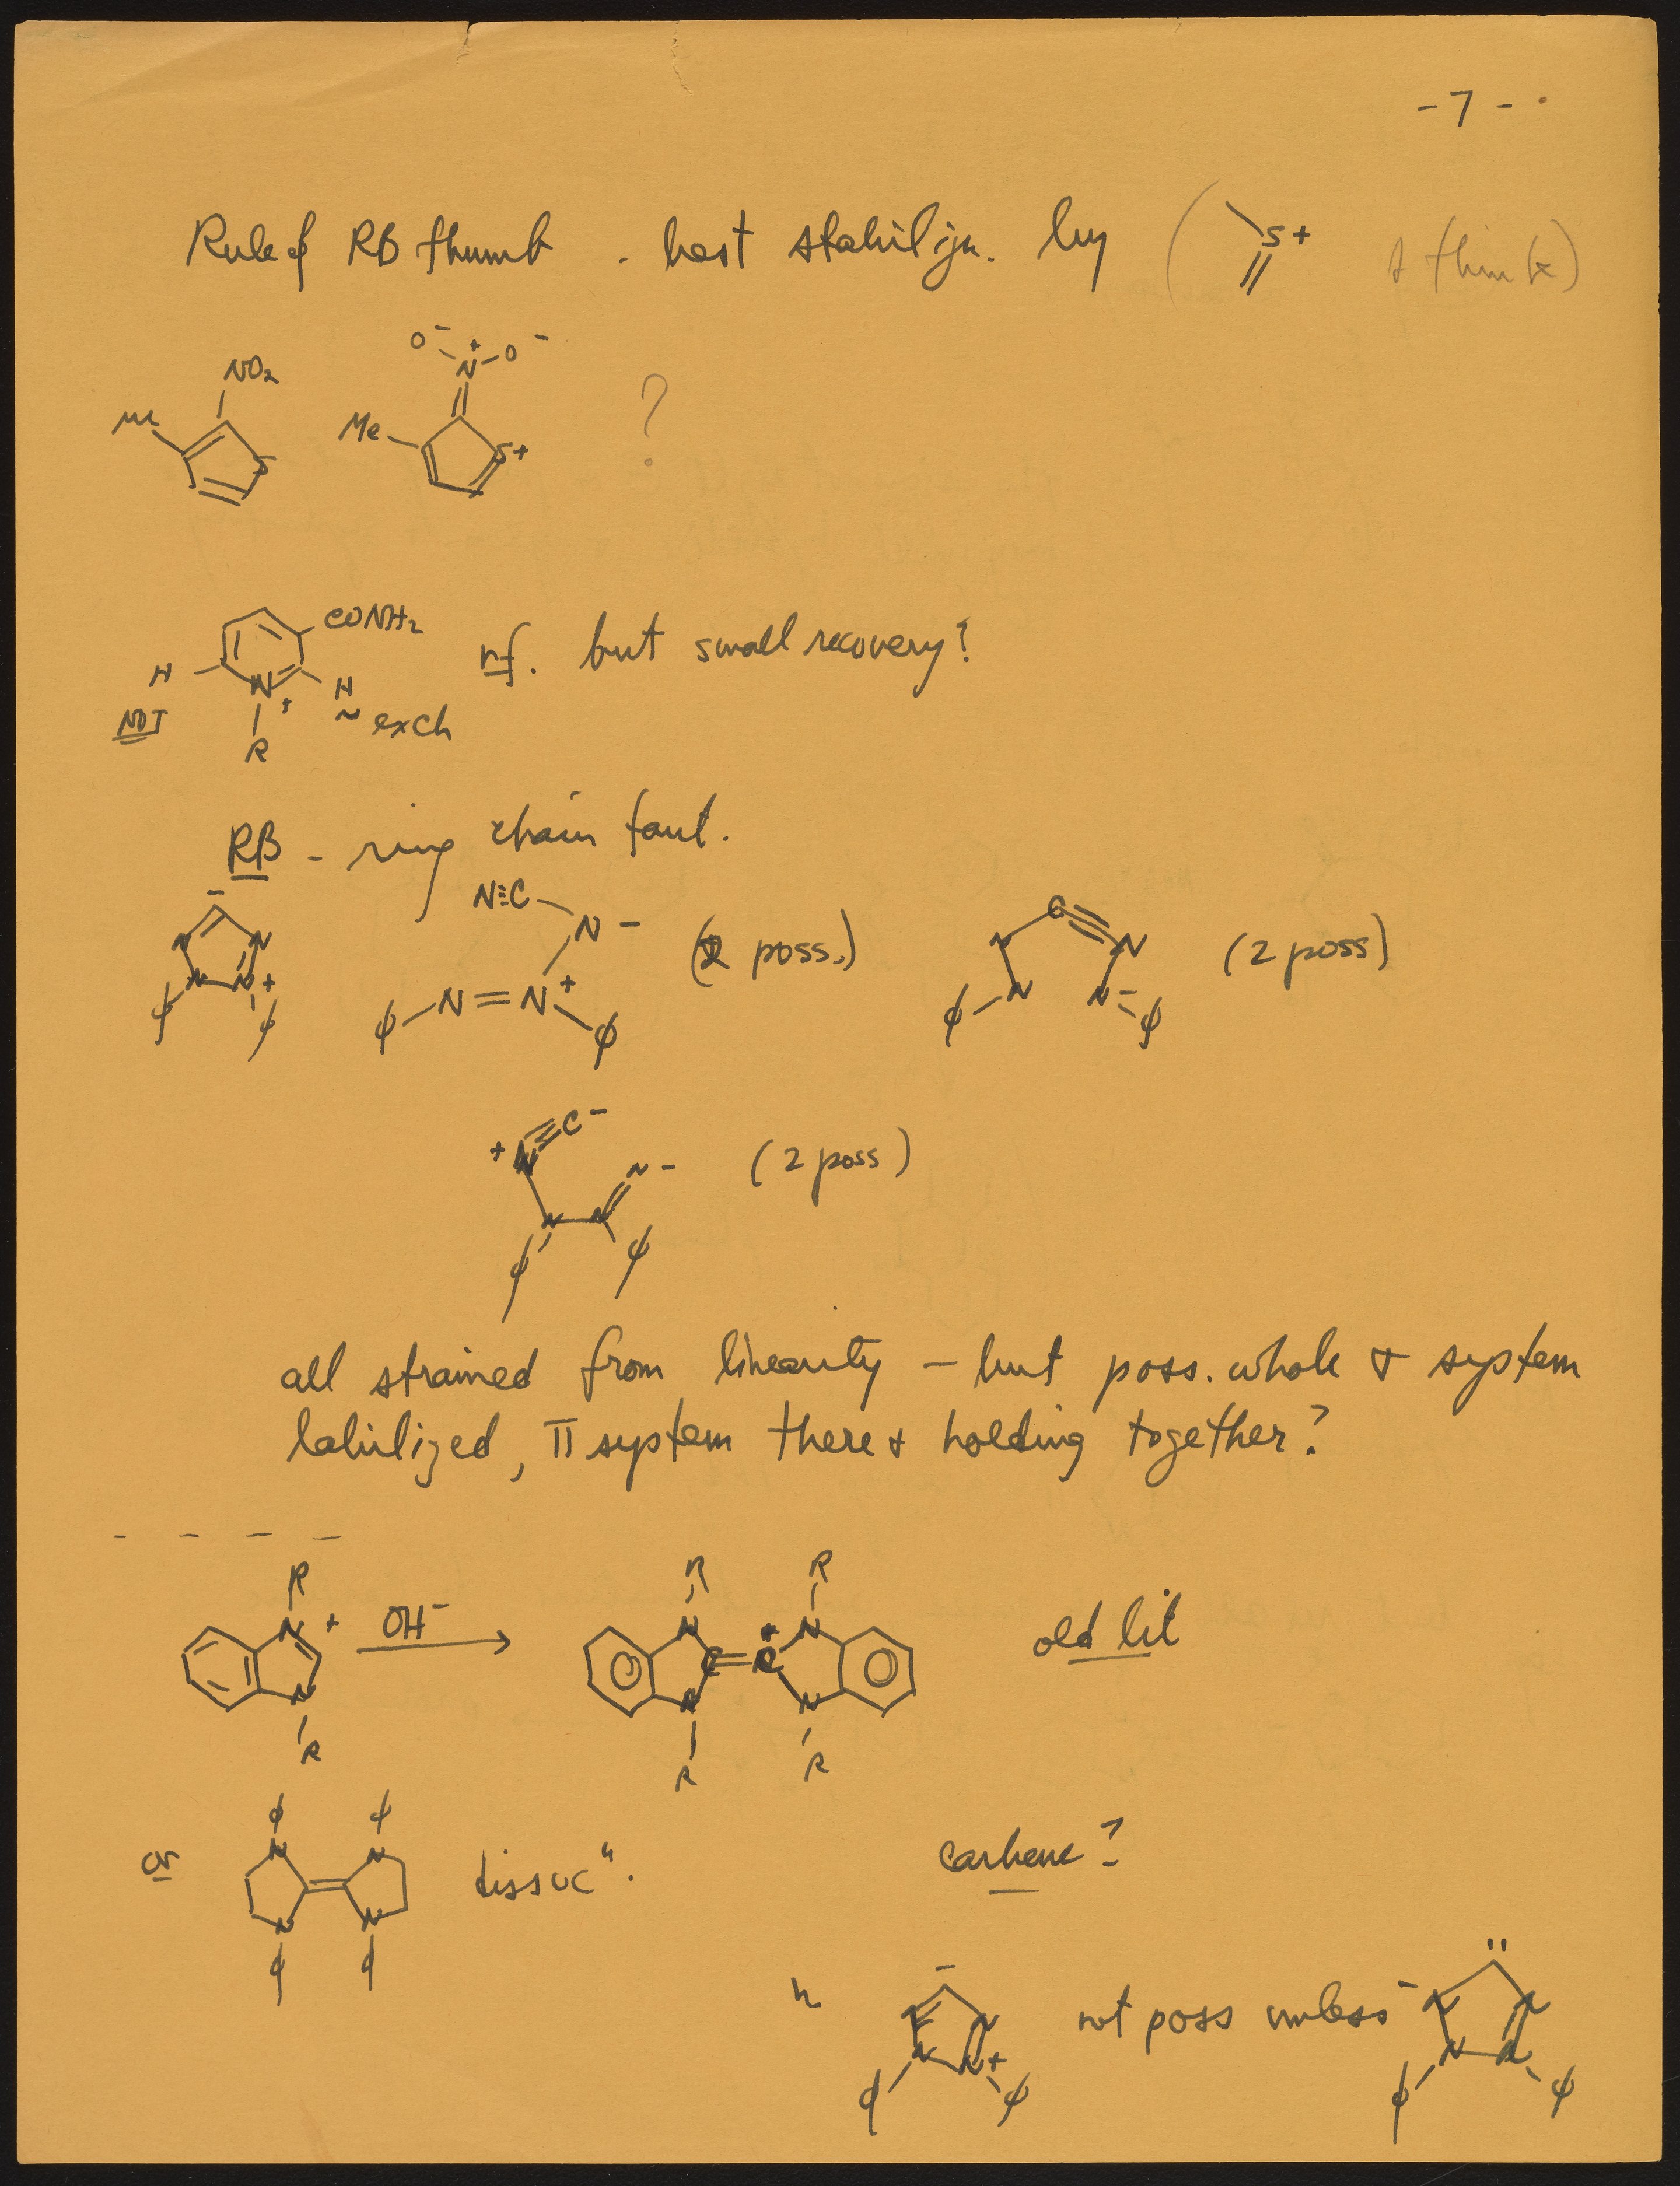 - 7 -
Rule of RB thumb - best stabilizn. by ( S+ I think)
NO2 Me S
O- N+ O- Me S+ ?
CONH2 H N+ R H ~ exch NOT
rf. but small recovery?
RB - ring chain taut.
- N N N N+ φ φ
N≡C N - φ N=N+ φ (2 poss.)
C N N N N- φ φ (2 poss)
+N≡C- N N N- φ φ (2 poss)
all strained from linearity - but poss. whole σ system
labilized, π system there & holding together?
- - - -
R N+ N R OH- R N N R C=C R N N R old lit
or φ N N φ φ N N φ dissocn.
carbene?
- N N N N+ φ φ not poss unless - N N N N φ φ